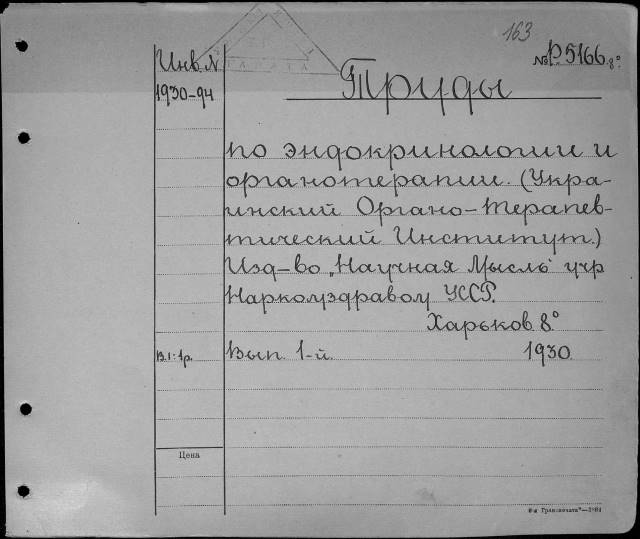 163
№ Р.5166. 8°
Инв. N
1930-94
Труды
по эндокринологии и
органотерапии. (Укра-
инский Органо-Терапев-
тический Институт.)
Изд-во „Научная Мысль" учр
Наркомздравом УССР.
Харьков 8°
В.1: 1р.
Вып. 1-й.
1930
Цена